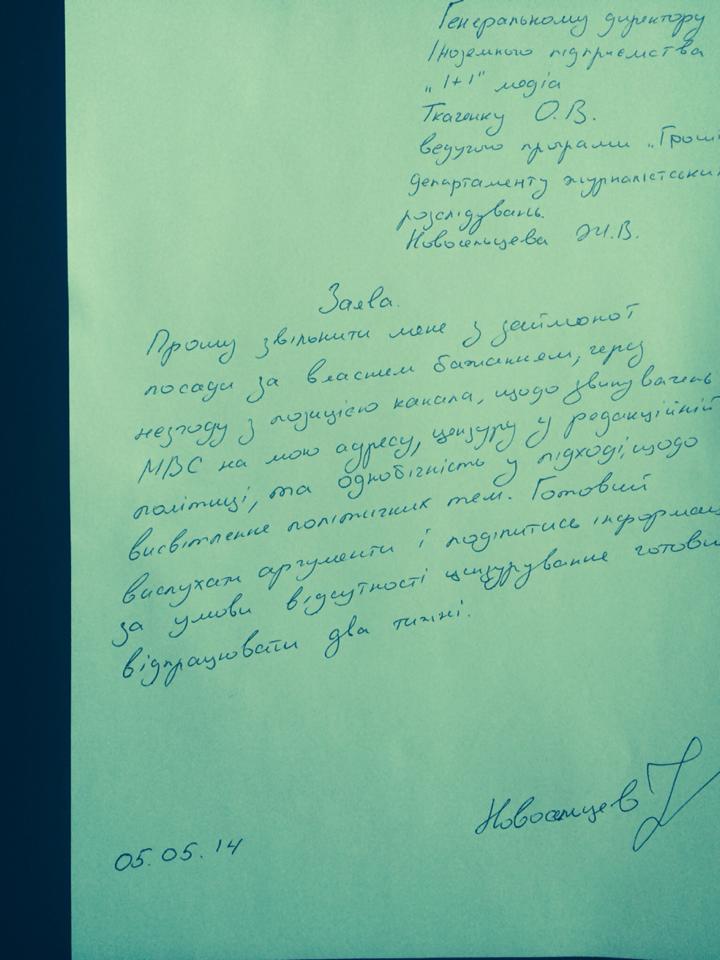 Генеральному директору
Іноземного підприємства
„1+1" медіа
Ткаченку О.В.
ведучого програми „Гроші
департаменту журналістськи
розслідувань.
Новосельцева Ж.В.
Заява.
Прошу звільнити мене з займаної
посади за власним бажанням, через
незгоду з позицією канала, щодо звинувачень
МВС на мою адресу, цензуру у редакційній
політиці, та однобічність у підході, щодо
висвітлення політичних тем. Готовий
вислухати аргументи і поділитись інформац
за умови відсутності цензурування готови
відпрацювати два тижні.
Новосельцев
05.05.14